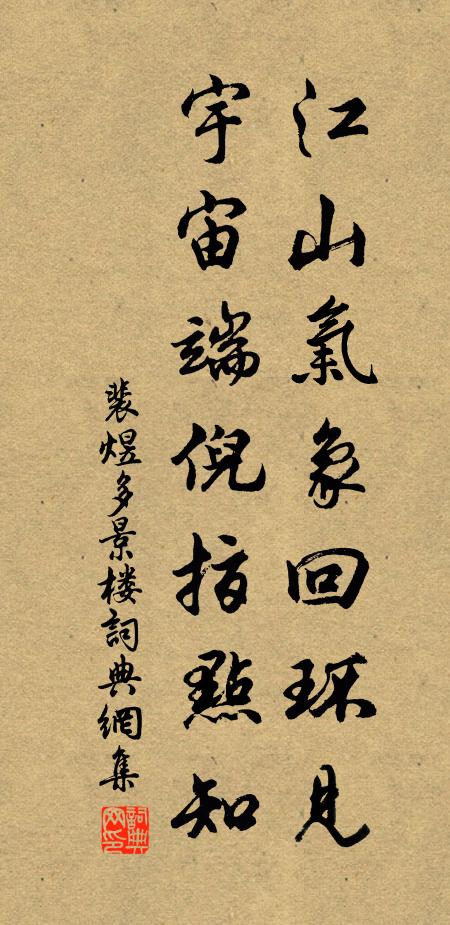 江山氣象回环見
宇宙端倪指點知
裴煜多景楼詞典網集
詞典網印